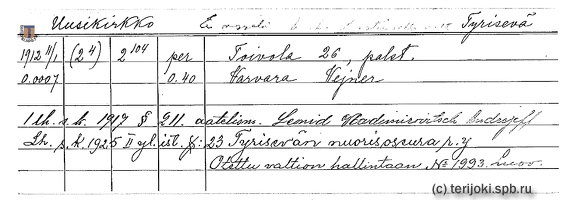 Uusikirkko Tyrisevä
1912 11/1 (2⁴) 2¹⁰⁴ per Toivola 26, palst.
0.0007 0.40 Varvara Vejner
1 lh. s. k. 1917 § 211. aatelism. Leonid Vladimirovitsch Andrejeff
Lh. s. k. 1925 II yl. ist. §: 23 Tyrisevän nuorisoseura r.y
Otettu valtion hallintaan, No 1993. Luov.
(c) terijoki.spb.ru